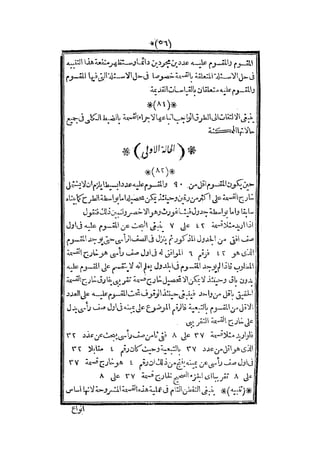 *(٥٦)*
المقسوم والمقسوم عليه عددين مجردين دائما وستظهر منفعة هذا التنبيه
فى حل الاسئلة المتعلقة بالقسمة خصوصا فى حل الاسئلة التى فيها المقسوم
والمقسوم عليه متعلقان بالقياسات القديمة
*(٨١)*
ينبغى الالتفات الى الطرق الواجب اتباعها لاجراء القسمة بالضبط الكلى فى جميع
حالاتها الممكنة
*( الحالة الاولى )*
*(٨٢)*
حين يكون المقسوم اقل من ٩٠ والمقسوم عليه عدد بسيط يلزم ان لا يشتمل
خارج القسمة على اكثر من رقم وحينئذ يمكن تحصيله اما بواسطة الطرح كما بيناه
سابقا واما بواسطة جدول فيثاغورث وهو الاخصر ولنبين ذلك فنقول
اذا اريد مثلا قسمة ٤٢ على ٧ ينبغى البحث عن المقسوم عليه فى اول
صف افقى من الجدول المذكور ثم ينزل فى الصف الرأسى حتى يوجد المقسوم
الذى هو ٤٢ فرقم ٦ الموافق له فى اول صف رأسى هو خارج القسمة
المطلوب فاذا لم يوجد المقسوم فى الجدول يعلم انه لا ينقسم على المقسوم عليه
بدون باق وحينئذ لا يمكن الا تحصيل خارج قسمة تقريبى يخالف خارج القسمة
الحقيقى باقل من واحد فينبغى حينئذ الوقوف تحت المقسوم عليه على العدد
الاقل من المقسوم بالتبعية فالرقم الموضوع على يمينه فى اول صف رأسى يدل
على خارج القسمة التقريبى
فلو اريد مثلا قسمة ٣٧ على ٨ ففى ثامن صف رأسى يبحث عن عدد ٣٢
الذى هو اقل من عدد ٣٧ بالتبعية وحيث كان رقم ٤ مقابلا ٣٢
فى اول صف رأسى عن يمينه ينتج من ذلك ان رقم ٤ هو خارج قسمة ٣٧
على ٨ تقريبا اى الجزء الصحيح لخارج قسمة ٣٧ على ٨
*(تنبيه)* ينبغى التفطن التام فى عملية هذه القسمة المشروحة لانها اساس
انواع